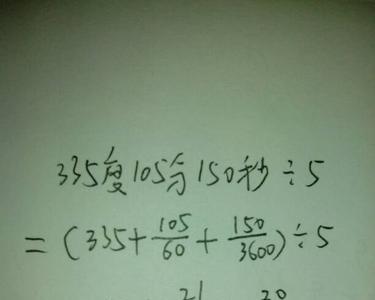 335度105分150秒÷5
=(335+105/60+150/3600)÷5
21 30